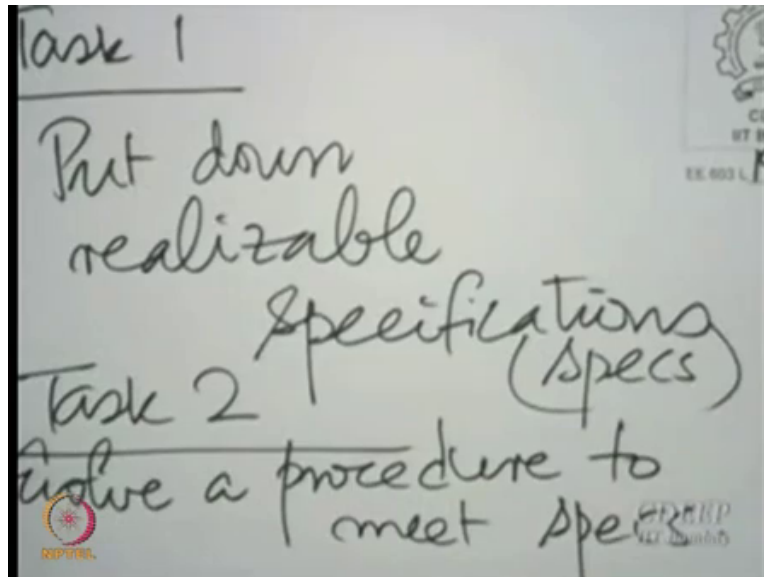 Task 1
Put down
realizable
specifications
(specs)
Task 2
Evolve a procedure to
meet specs.
NPTEL
CDEEP
IIT Bombay
EE 603 L